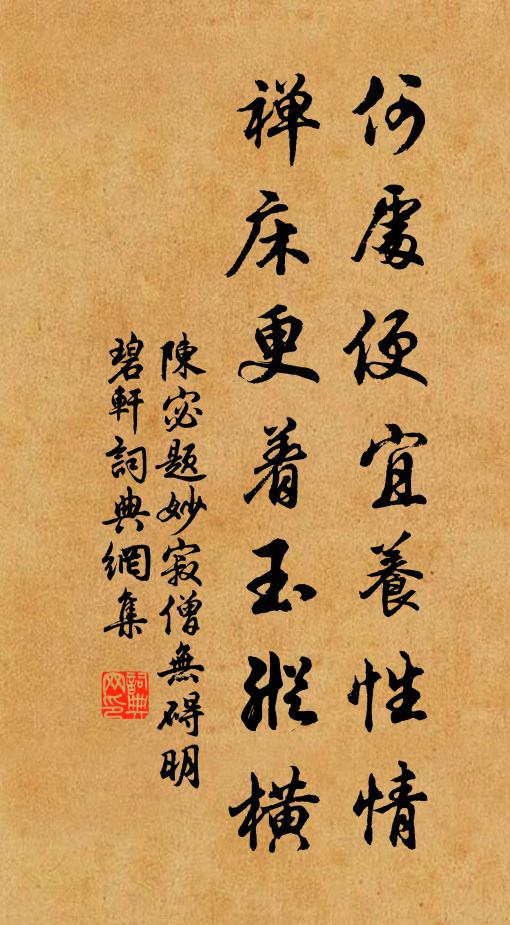 何處便宜養性情
禪床更着玉縱橫
陳宓題妙寂僧無碍明
碧軒詞典網集
詞典网印